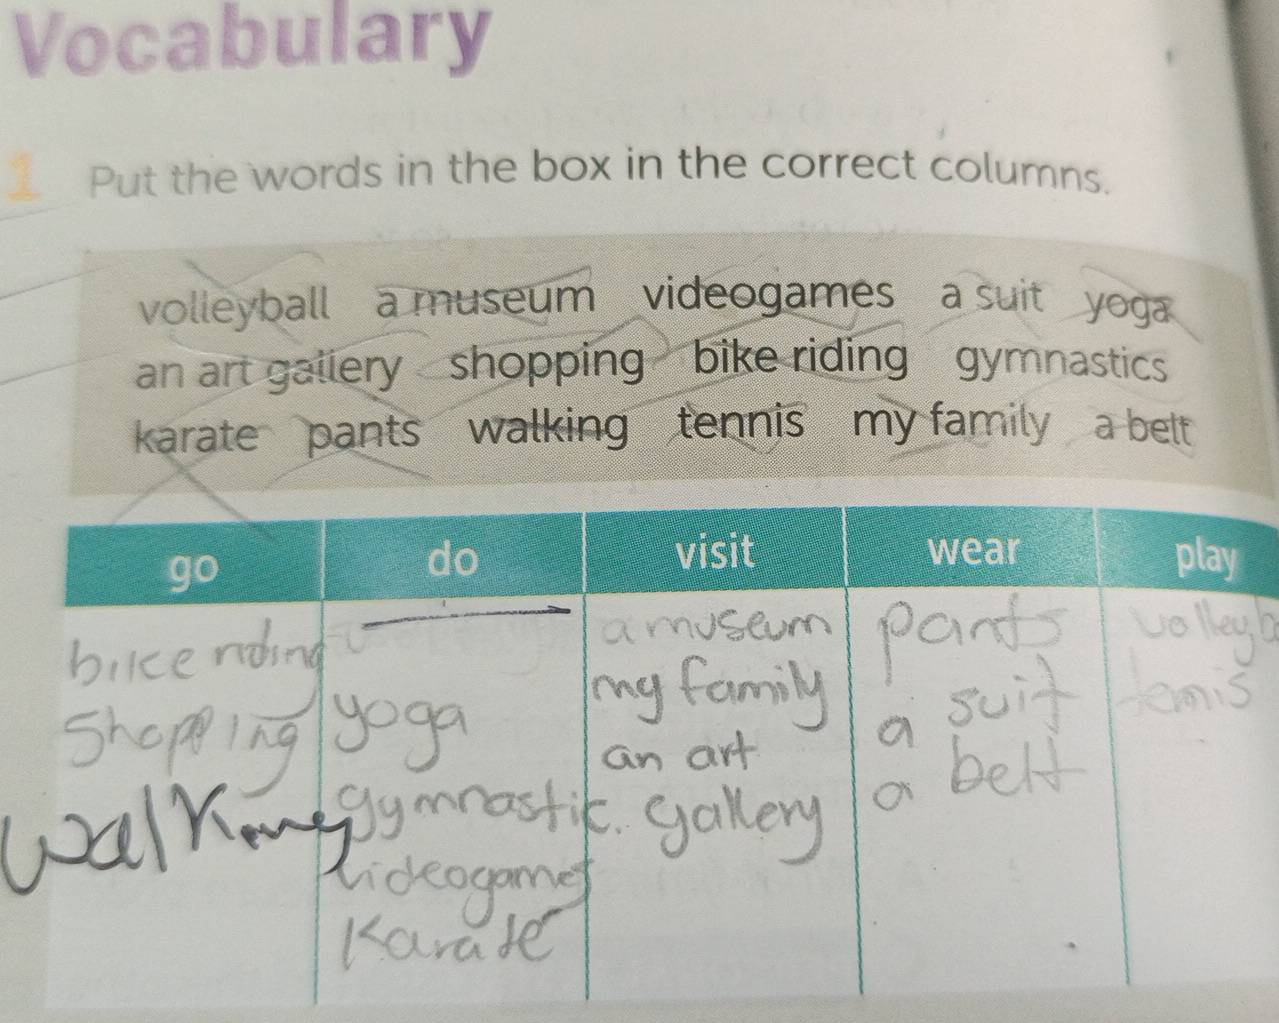 Vocabulary
1 Put the words in the box in the correct columns.
volleyball a museum videogames a suit yoga
an art gallery shopping bike riding gymnastics
karate pants walking tennis my family a belt
go do visit wear play
bike riding a museum pants volleyb
Shopping yoga my family a suit tennis
walking gymnastic. an art gallery a belt
videogames
Karate